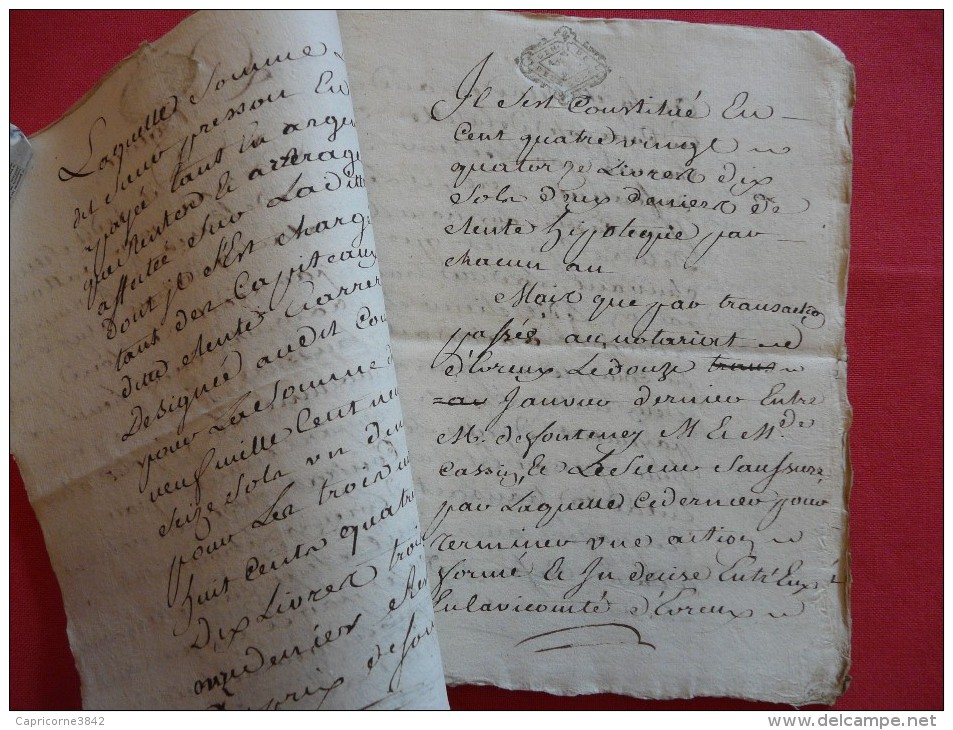 Laquelle Somme
dit Sauv presson En
payée tant En argen
que Rentes & arrerage
affectée Sur Laditte
Dont il S'Est chargé
tant des Capiteaux
ditte Rente
Designée audit
pour La Somme
neuf mille Cent
Seize Sols un
pour Les trois
huit Cents quatre
Dix Livres trois
onze deniers
prix
Il S'est Constitué En
Cent quatre vingt
quatorze Livres dix
Sols deux deniers de
Rente hipoteque par
chacun an
Mais que par transaction
passée au notariat
d'Evreux Le douze
Janvier dernier Entre
M. desfonteney M. & M.de
Cassiq & Le Sieur Saussure
par Laquelle Ce dernier pour
terminer une action
formé & Indecise Entr'Eux
En la vicomté d'Evreux
Capricorne3842
delcampe.net